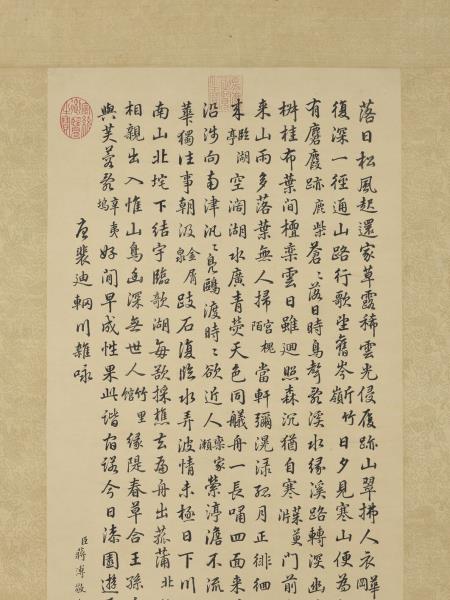 落日松風起還家草露稀雲光侵履跡山翠拂人衣
復深一徑通山路行歌望舊岑斤竹嶺日夕見寒山便為
有麏麚跡鹿柴蒼〻落日時鳥聲亂溪水緣溪路轉深幽
椒桂布葉間檀欒雲日雖迴照森沉猶自寒茱萸沜門前
來山雨多落葉無人掃宮槐陌當軒彌滉漾孤月正徘徊
來臨湖亭空闊湖水廣青熒天色同艤舟一長嘯四面來
沿涉向南津汎〻鳧鷗渡時〻欲近人欒家瀨縈渟澹不流
華獨往事朝汲金屑泉跂石復臨水弄波情未極日下川
南山北垞下結宇臨欹湖每欲採樵去扁舟出菰蒲北
相親出入惟山鳥幽深無世人竹里館緣隄春草合王孫
與芙蓉亂辛夷塢好閒早成性果此諧宿諾今日漆園遊
唐裴迪輞川雜咏
臣蔣溥敬